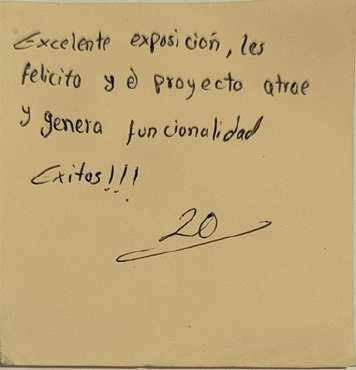 Excelente exposición, les
felicito y è proyecto atrae
y genera funcionalidad
Exitos!!!
20